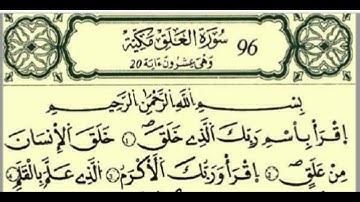 سُورَةُ الْعَلَقِ مَكِّيَّةٌ 96
وَهِيَ عِشْرُونَ ءَايَة 20
بِسْمِ اللَّهِ الرَّحْمَٰنِ الرَّحِيمِ
اِقْرَأْ بِاسْمِ رَبِّكَ الَّذِي خَلَقَ خَلَقَ الْإِنْسَانَ
مِنْ عَلَقٍ اِقْرَأْ وَرَبُّكَ الْأَكْرَمُ الَّذِي عَلَّمَ بِالْقَلَمِ